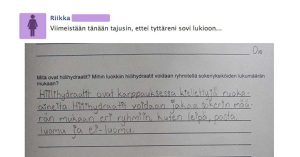 Riikka
Viimeistään tänään tajusin, ettei tyttäreni sovi lukioon...
Mitä ovat hiilihydraatit? Mihin luokkiin hiilihydraatit voidaan ryhmitellä sokeriyksiköiden lukumäärän
mukaan?
Hiilihydraatit ovat karppauksessa kiellettyjä ruoka-
aineita. Hiilihydraatit voidaan jakaa sokerin mää-
rän mukaan eri ryhmiin, kuten leipä, pasta,
luomu ja ei-luomu.